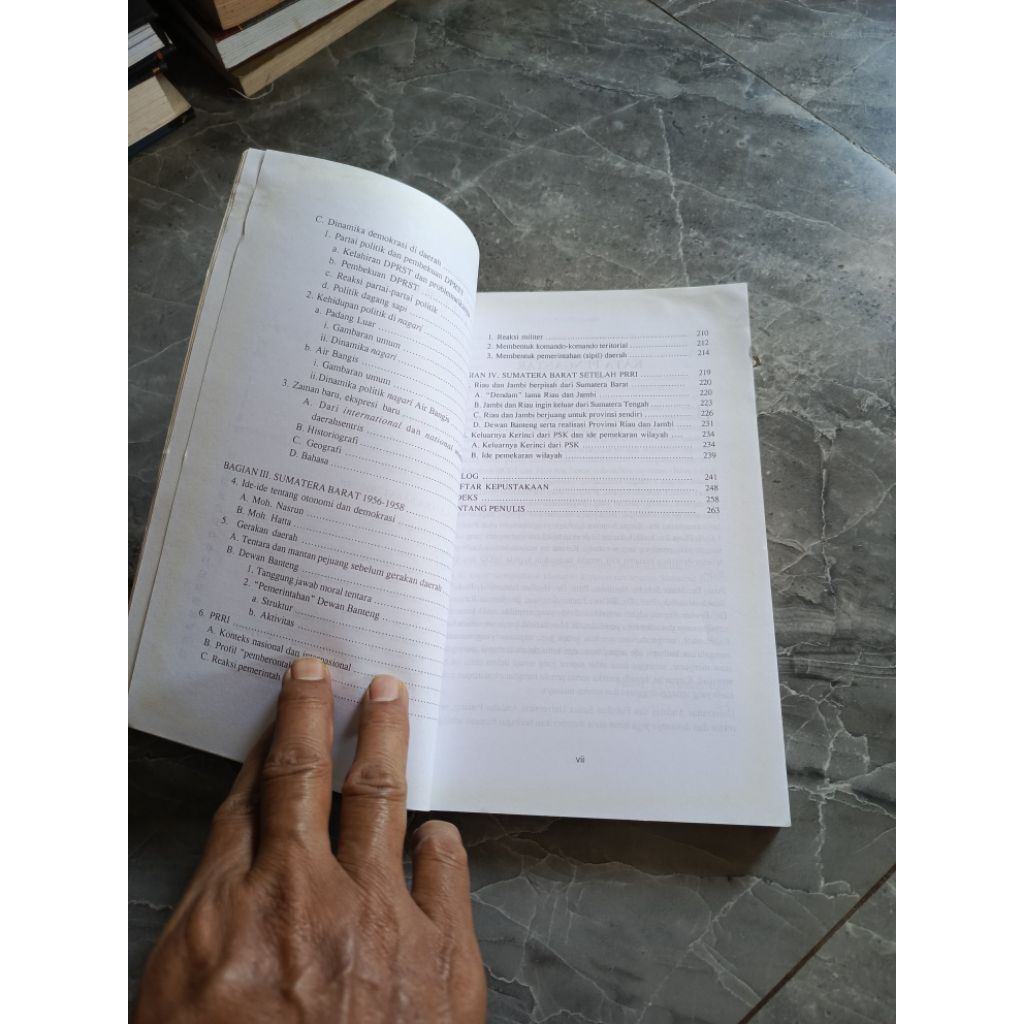 C. Dinamika demokrasi di daerah ..........
1. Partai politik dan pembekuan DPRST
a. Kelahiran DPRST dan
b. Pembekuan DPRST ..........
c. Reaksi partai-partai politik
d. Politik dagang sapi ..........
2. Kehidupan politik di nagari ..........
a. Padang Luar ..........
i. Gambaran umum ..........
ii. Dinamika nagari ..........
b. Air Bangis ..........
i. Gambaran umum ..........
ii. Dinamika politik nagari Air Bangis
3. Zaman baru, ekspresi baru ..........
A. Dari international dan national
daerahsentris ..........
B. Historiografi ..........
C. Geografi ..........
D. Bahasa ..........
BAGIAN III. SUMATERA BARAT 1956-1958 ..........
4. Ide-ide tentang otonomi dan demokrasi ..........
A. Moh. Nasrun ..........
B. Moh. Hatta ..........
5. Gerakan daerah ..........
A. Tentara dan mantan pejuang sebelum gerakan daerah
B. Dewan Banteng ..........
1. Tanggung jawab moral tentara ..........
2. "Pemerintahan" Dewan Banteng ..........
a. Struktur ..........
b. Aktivitas ..........
6. PRRI ..........
A. Konteks nasional dan internasional ..........
B. Profil "pemberontak
C. Reaksi pemerintah
1. Reaksi militer .......... 210
2. Membentuk komando-komando teritorial .......... 212
3. Membentuk pemerintahan (sipil) daerah .......... 214
IAN IV. SUMATERA BARAT SETELAH PRRI .......... 219
Riau dan Jambi berpisah dari Sumatera Barat .......... 220
A. "Dendam" lama Riau dan Jambi .......... 220
B. Jambi dan Riau ingin keluar dari Sumatera Tengah .......... 223
C. Riau dan Jambi berjuang untuk provinsi sendiri .......... 226
D. Dewan Banteng serta realisasi Provinsi Riau dan Jambi .......... 231
Keluarnya Kerinci dari PSK dan ide pemekaran wilayah .......... 234
A. Keluarnya Kerinci dari PSK .......... 234
B. Ide pemekaran wilayah .......... 239
LOG .......... 241
FTAR KEPUSTAKAAN .......... 248
DEKS .......... 258
NTANG PENULIS .......... 263
vii